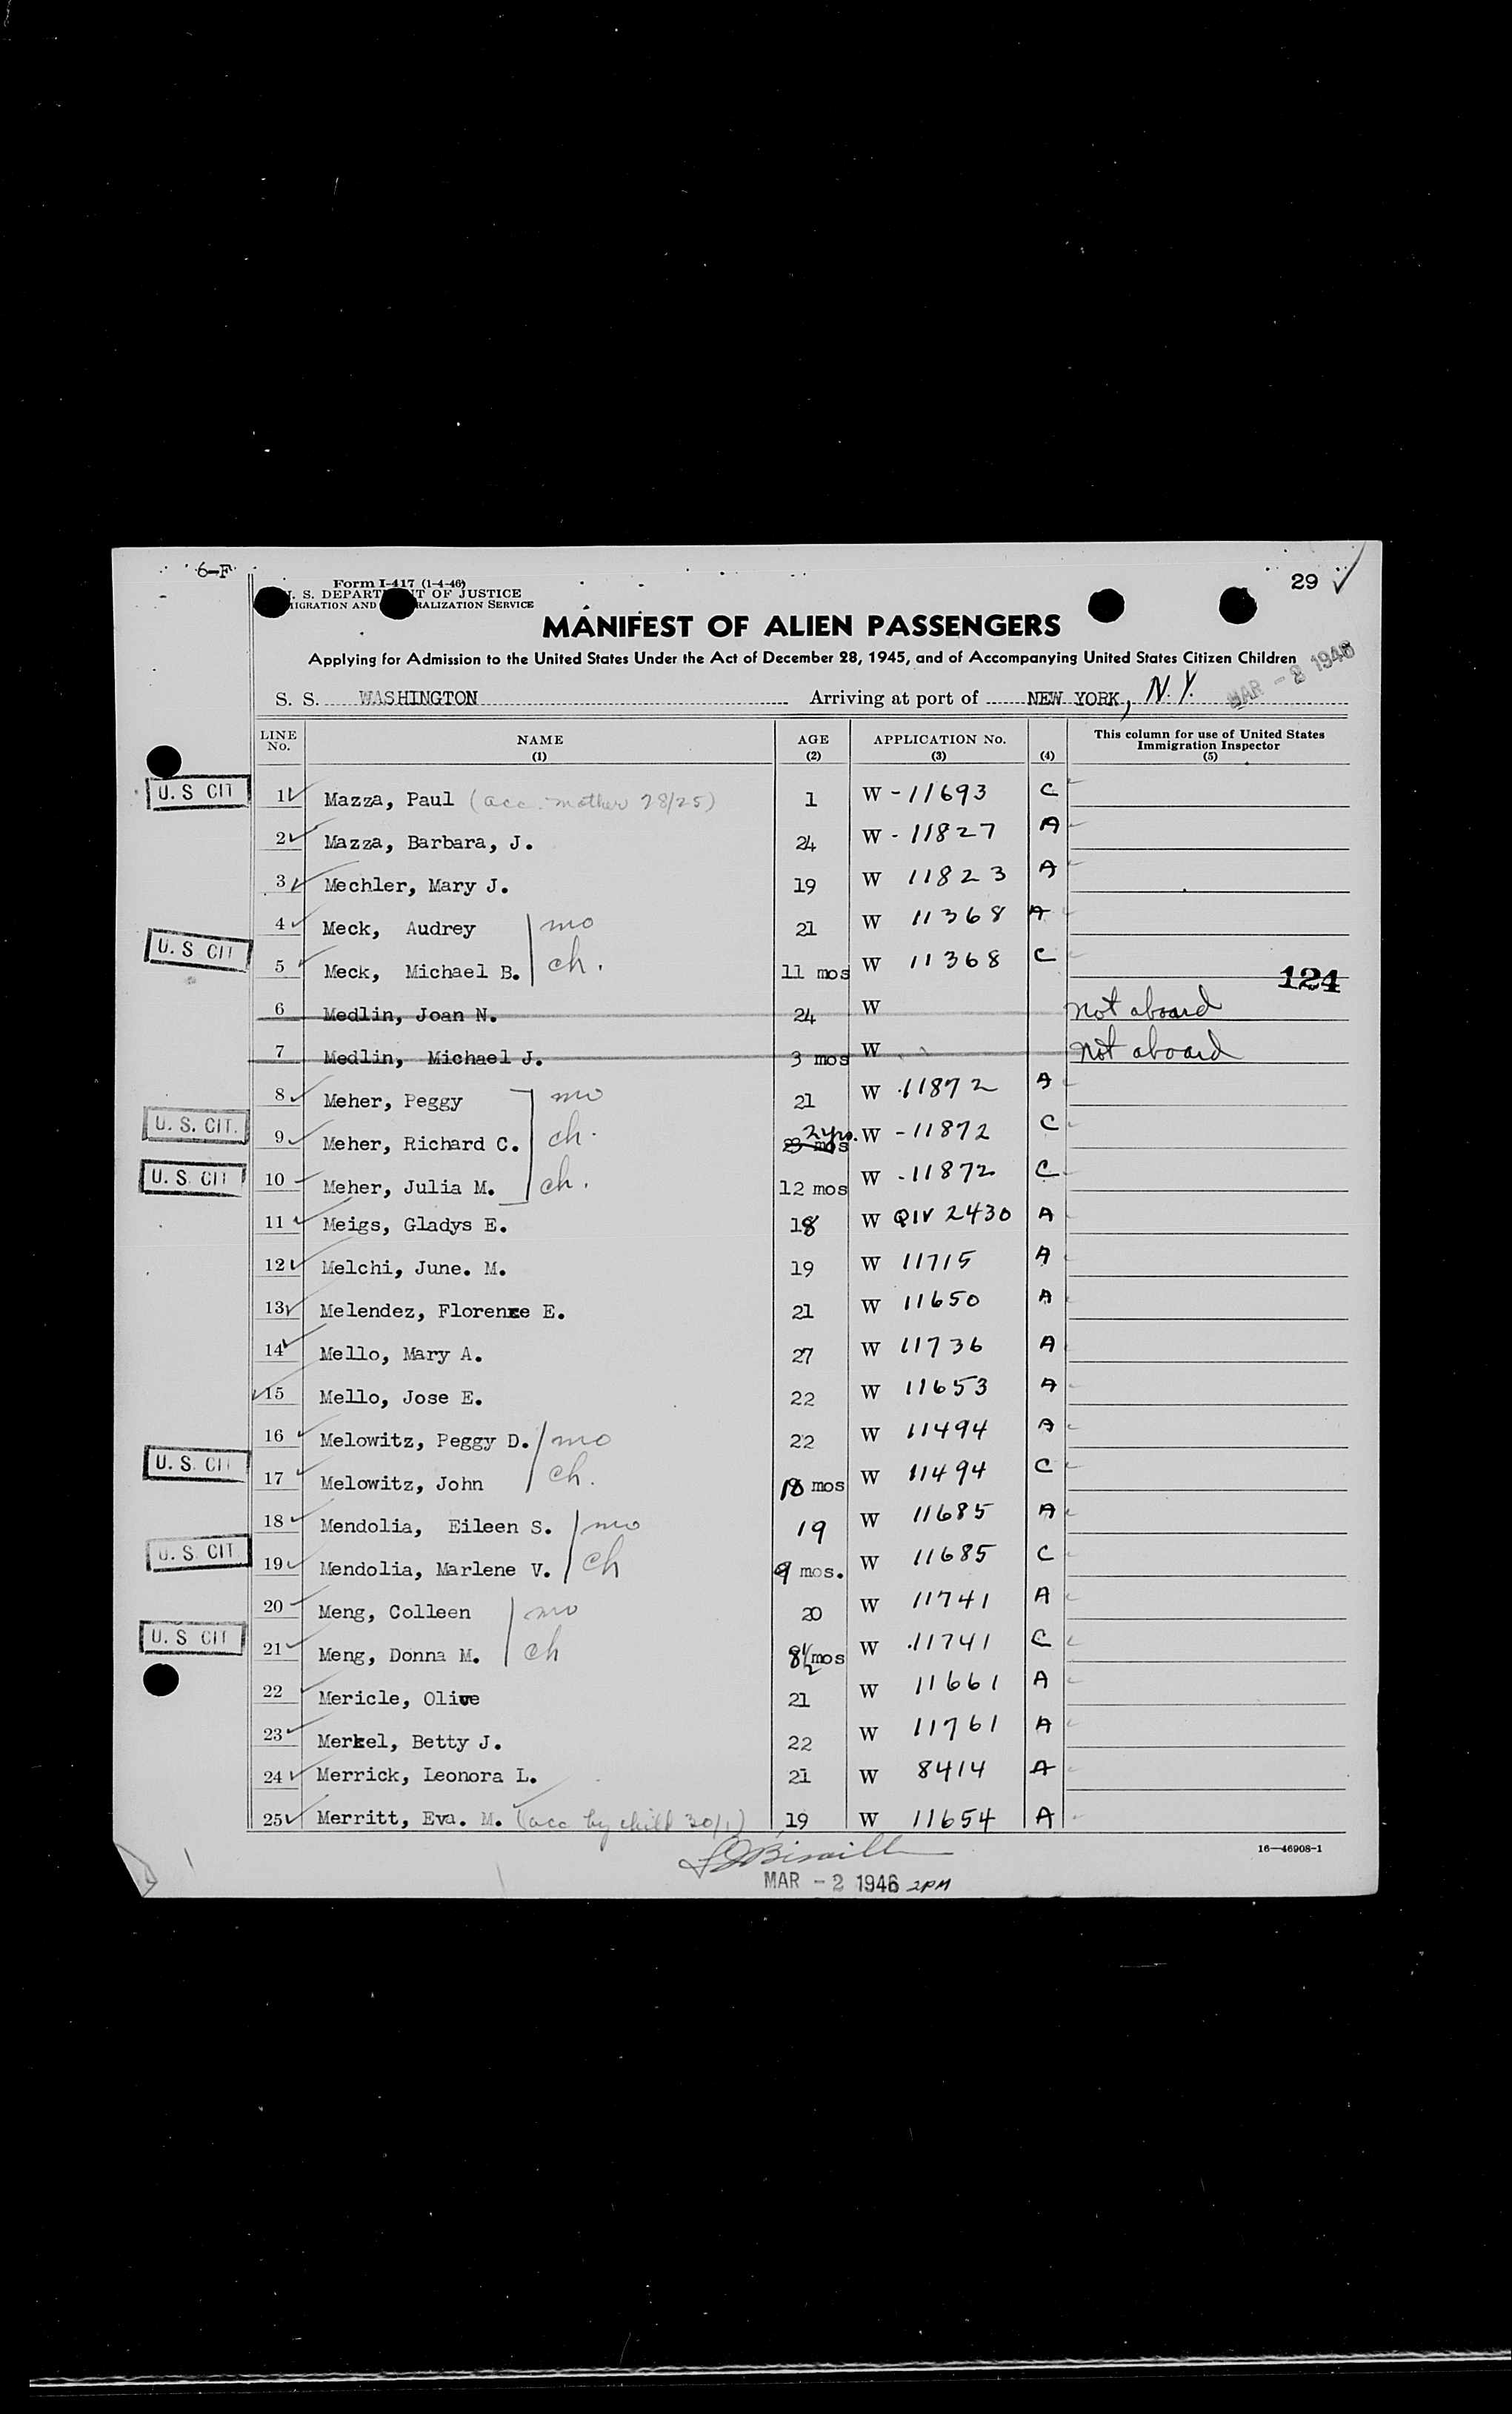 6-F
Form I-417 (1-4-46)
U. S. DEPARTMENT OF JUSTICE
IMMIGRATION AND NATURALIZATION SERVICE
29
MANIFEST OF ALIEN PASSENGERS
Applying for Admission to the United States Under the Act of December 28, 1945, and of Accompanying United States Citizen Children
MAR - 2 1946
S. S. WASHINGTON Arriving at port of NEW YORK, N.Y.
LINE No. NAME (1) AGE (2) APPLICATION No. (3) (4) This column for use of United States Immigration Inspector (5)
U. S CIT 1 Mazza, Paul (acc. mother 28/25) 1 W - 11693 C
2 Mazza, Barbara, J. 24 W - 11827 A
3 Mechler, Mary J. 19 W 11823 A
4 Meck, Audrey mo 21 W 11368 A
U. S CIT 5 Meck, Michael B. ch. 11 mos W 11368 C
124
6 Medlin, Joan N. 24 W not aboard
7 Medlin, Michael J. 3 mos W not aboard
8 Meher, Peggy mo 21 W 11872 A
U. S. CIT. 9 Meher, Richard C. ch. 23 mos 2 yrs. W - 11872 C
U. S. CIT 10 Meher, Julia M. ch. 12 mos W - 11872 C
11 Meigs, Gladys E. 18 W QIV 2430 A
12 Melchi, June. M. 19 W 11715 A
13 Melendez, Florence E. 21 W 11650 A
14 Mello, Mary A. 27 W 11736 A
15 Mello, Jose E. 22 W 11653 A
16 Melowitz, Peggy D. mo 22 W 11494 A
U. S. CIT 17 Melowitz, John ch. 18 mos W 11494 C
18 Mendolia, Eileen S. mo 19 W 11685 A
U. S. CIT 19 Mendolia, Marlene V. ch 9 mos. W 11685 C
20 Meng, Colleen mo 20 W 11741 A
U. S CIT 21 Meng, Donna M. ch 8½ mos W 11741 C
22 Mericle, Olive 21 W 11661 A
23 Merkel, Betty J. 22 W 11761 A
24 Merrick, Leonora L. 21 W 8414 A
25 Merritt, Eva. M. (acc by child 30/1) 19 W 11654 A
16—46908-1
MAR - 2 1946 2PM